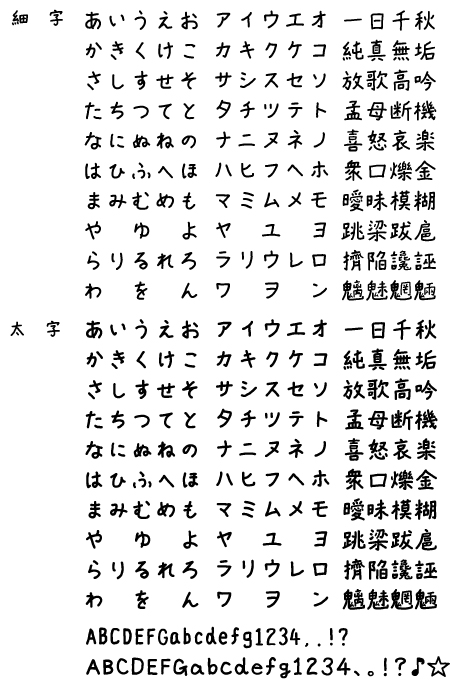 細字 あいうえお アイウエオ 一日千秋
かきくけこ カキクケコ 純真無垢
さしすせそ サシスセソ 放歌高吟
たちつてと タチツテト 孟母断機
なにぬねの ナニヌネノ 喜怒哀楽
はひふへほ ハヒフヘホ 衆口爍金
まみむめも マミムメモ 曖昧模糊
や ゆ よ ヤ ユ ヨ 跳梁跋扈
らりるれろ ラリウレロ 擠陥讒誣
わ を ん ワ ヲ ン 魑魅魍魎
太字 あいうえお アイウエオ 一日千秋
かきくけこ カキクケコ 純真無垢
さしすせそ サシスセソ 放歌高吟
たちつてと タチツテト 孟母断機
なにぬねの ナニヌネノ 喜怒哀楽
はひふへほ ハヒフヘホ 衆口爍金
まみむめも マミムメモ 曖昧模糊
や ゆ よ ヤ ユ ヨ 跳梁跋扈
らりるれろ ラリウレロ 擠陥讒誣
わ を ん ワ ヲ ン 魑魅魍魎
ABCDEFGabcdefg1234,.!?
ABCDEFGabcdefg1234、。!?♪☆